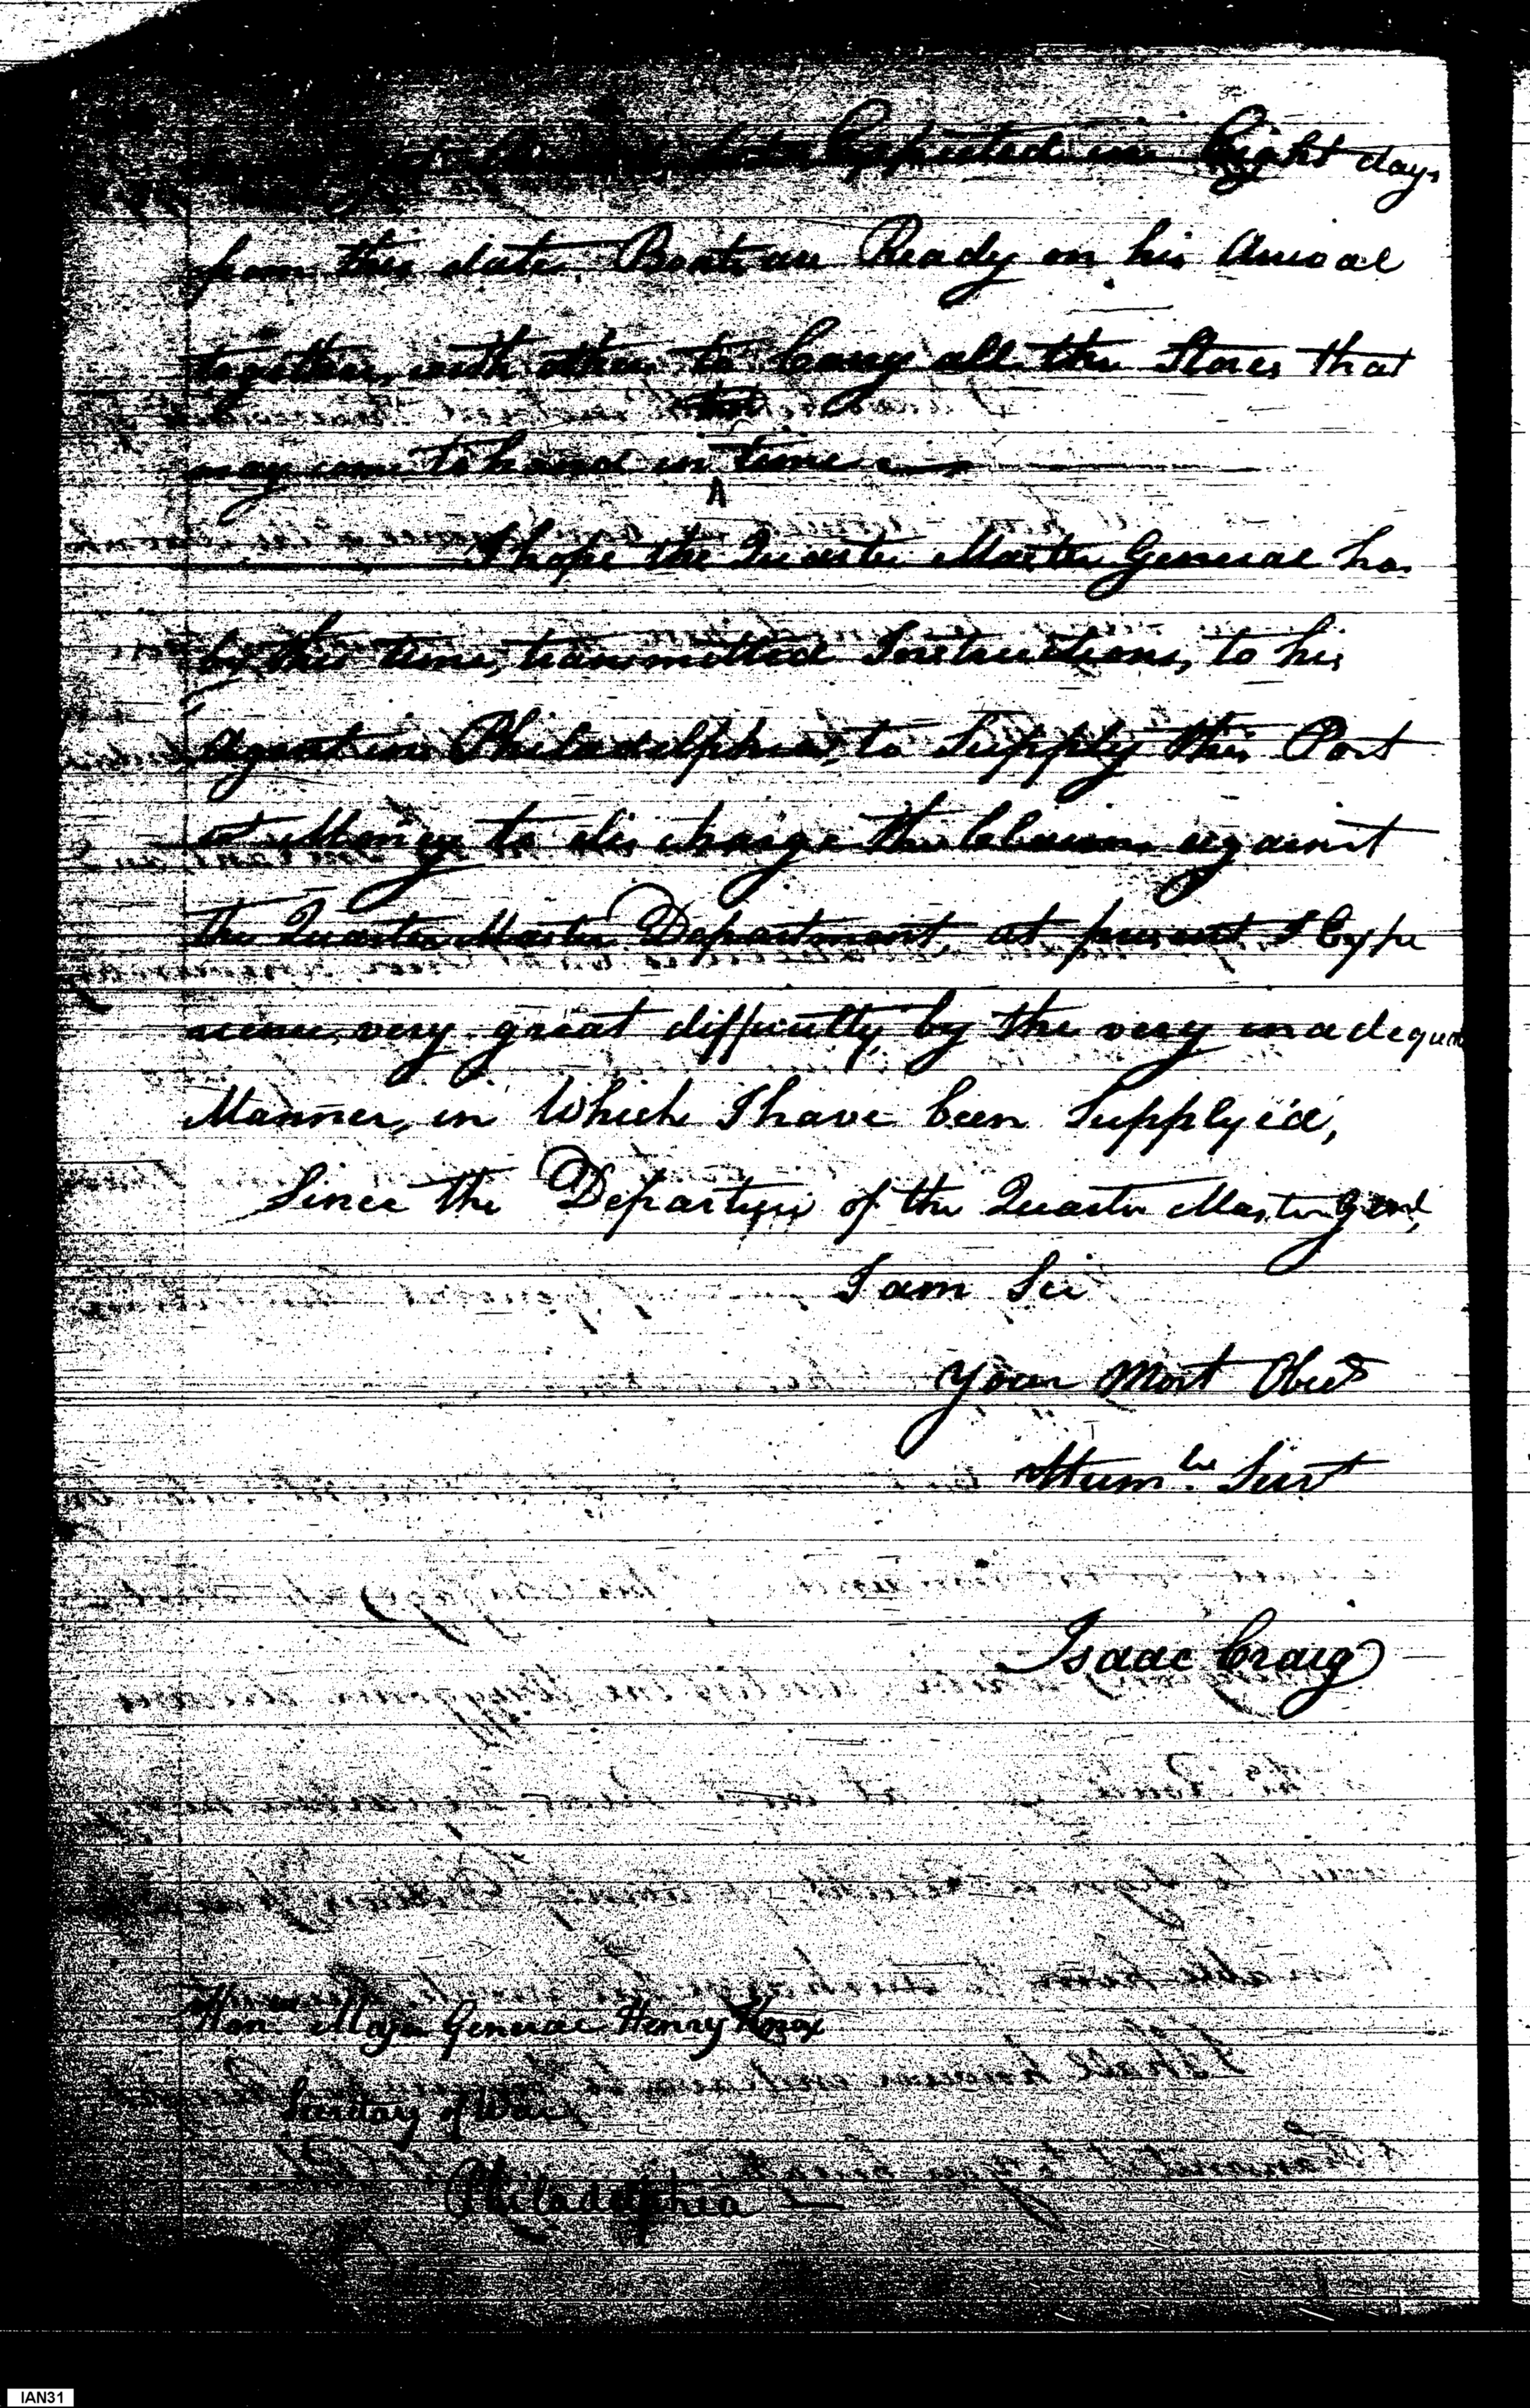 Expected in Eight days
from this date, Boats are Ready on his Arival
together, with others to Carry all the Stores that
that
may come to hand in time
^
I hope the Quarter Master General has
by this time, transmitted Instructions, to his
Agent in Philadelphia, to Supply this Post
Money to discharge the Claims against
the Quarter Master Department, at present I Expe
rience very great difficulty by the very inadequate
Manner, in Which I have been Supplyed,
Since the Departure of the Quarter Master Genl,
I am Sir
Your Most Obed
Humle Servt
Isaac Craig
Major General Henry Knox
Secretary of War
Philadelphia
IAN31